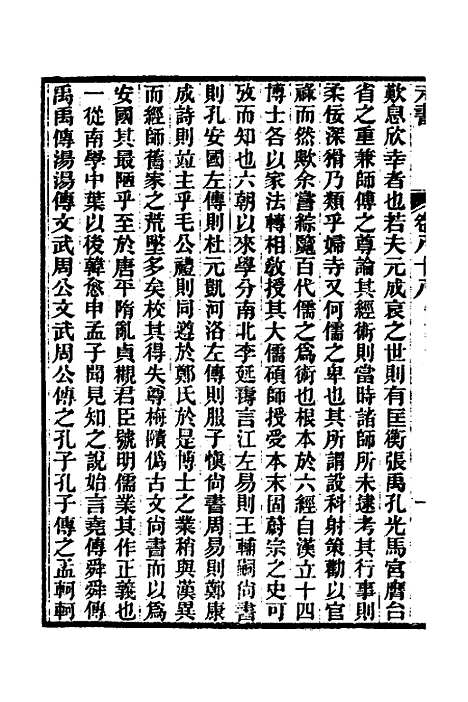 元書 卷八十八
歎息欣幸者也若夫元成哀之世則有匡衡張禹孔光馬宮膺台
省之重兼師傅之尊論其經術則當時諸師所未逮考其行事則
柔佞深猾乃類乎婦寺又何儒之卑也其所謂設科射策勸以官
祿而然歟余嘗綜覽百代儒之爲術也根本於六經自漢立十四
博士各以家法轉相敎授其大儒碩師授受本末固蔚宗之史可
攷而知也六朝以來學分南北李延壽言江左易則王輔嗣尙書
則孔安國左傳則杜元凱河洛左傳則服子愼尙書周易則鄭康
成詩則竝主乎毛公禮則同遵於鄭氏於是博士之業稍與漢異
而經師舊家之荒墜多矣校其得失尊梅賾僞古文尙書而以爲
安國其最陋乎至於唐平隋亂貞觀君臣號明儒業其作正義也
一從南學中葉以後韓愈申孟子聞見知之說始言堯傳舜舜傳
禹禹傳湯湯傳文武周公文武周公傳之孔子孔子傳之孟軻軻